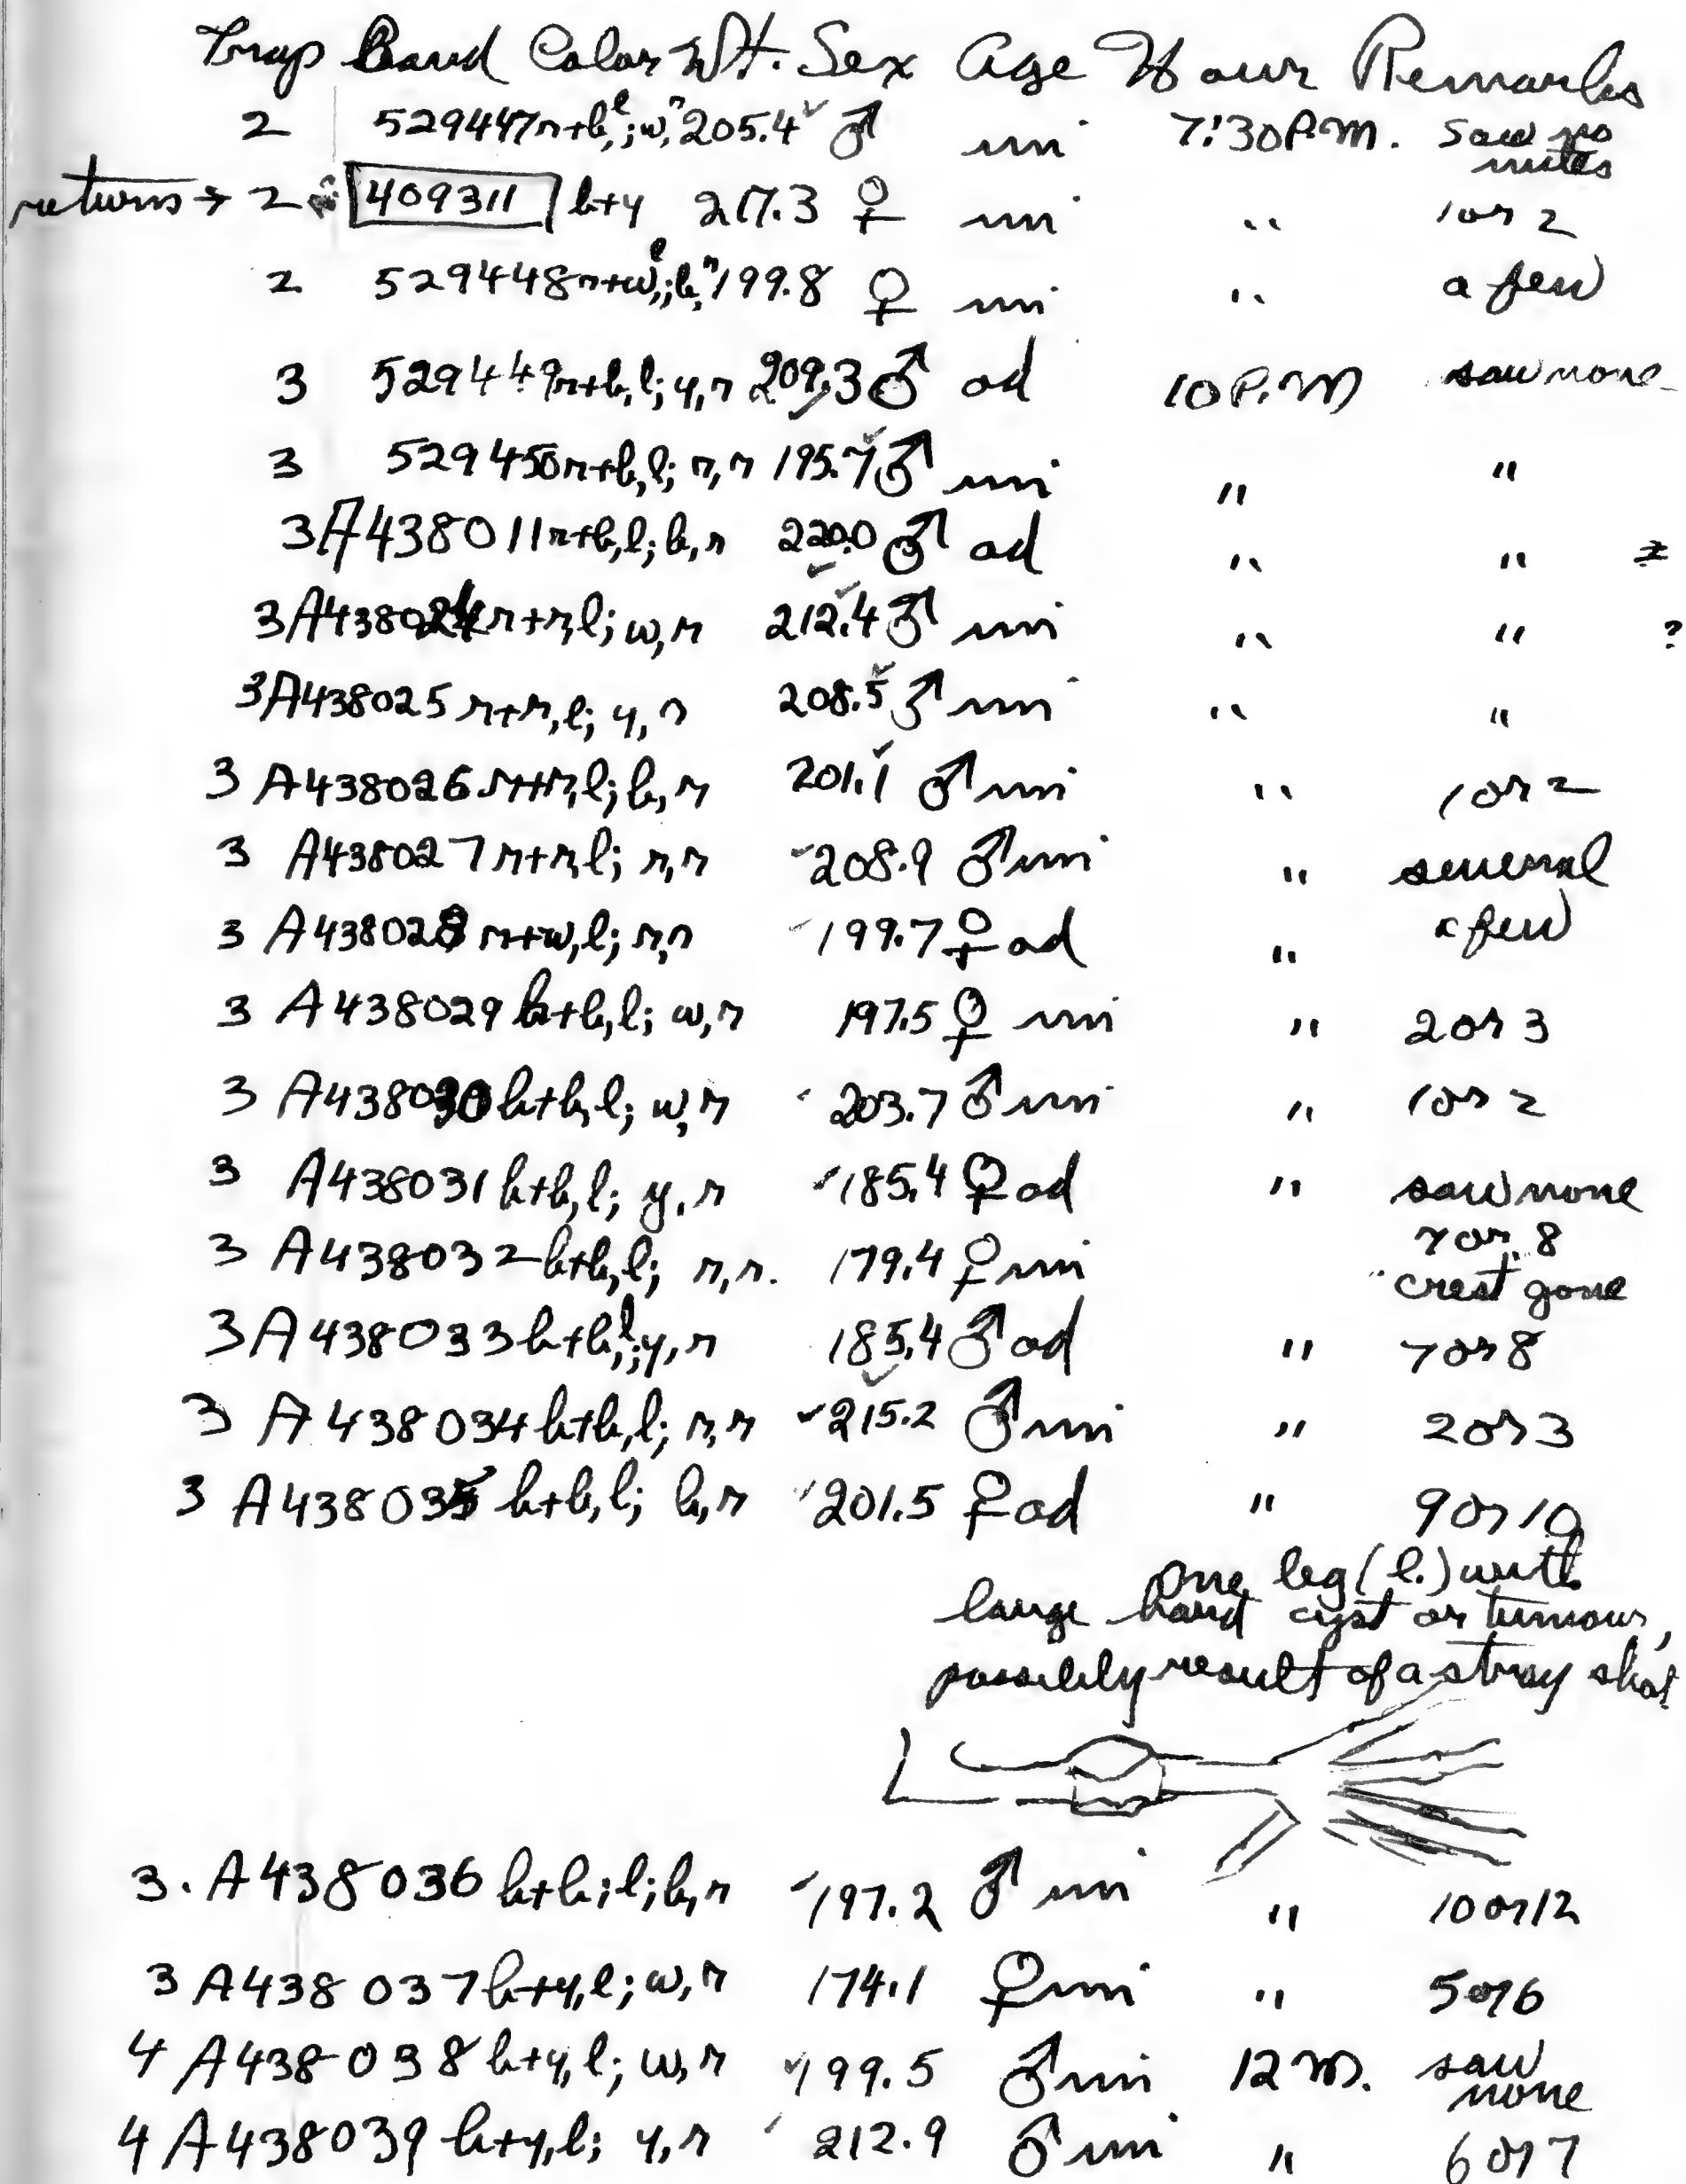 Trap Band Color Wt. Sex Age Hour Remarks
2 529447 r+b,l; w,r 205.4 ♂ im 7:30 P.M. saw no mites
returns → 2 409311 b+y 217.3 ♀ im " 1 or 2
2 529448 r+w,l; b,r 199.8 ♀ im " a few
3 529449 r+b,l; y,r 209.3 ♂ ad 10 P.M saw none
3 529450 r+b,l; r,r 195.7 ♂ im " "
3 A438011 r+b,l; b,r 220.0 ♂ ad " "
3 A438024 r+r,l; w,r 212.4 ♂ im " " ?
3 A438025 r+r,l; y,r 208.5 ♂ im " "
3 A438026 r+r,l; b,r 201.1 ♂ im " 1 or 2
3 A438027 r+r,l; r,r 208.9 ♂ im " several
3 A438028 r+w,l; r,r 199.7 ♀ ad " a few
3 A438029 b+b,l; w,r 197.5 ♀ im " 2 or 3
3 A438030 b+b,l; w,r 203.7 ♂ im " 1 or 2
3 A438031 b+b,l; y,r 185.4 ♀ ad " saw none
3 A438032 b+b,l; r,r. 179.4 ♀ im 7 or 8
" crest gone
3 A438033 b+b,l; y,r 185.4 ♂ ad " 7 or 8
3 A438034 b+b,l; r,r 215.2 ♂ im " 2 or 3
3 A438035 b+b,l; b,r 201.5 ♀ ad " 9 or 10
one leg (l.) with
large hard cyst or tumour,
possibly result of a stray shot
3. A438036 b+b; l; b,r 197.2 ♂ im " 10 or 12
3 A438037 b+y,l; w,r 174.1 ♀ im " 5 or 6
4 A438038 b+y,l; w,r 199.5 ♂ im 12 M. saw none
4 A438039 b+y,l; y,r 212.9 ♂ im " 6 or 7